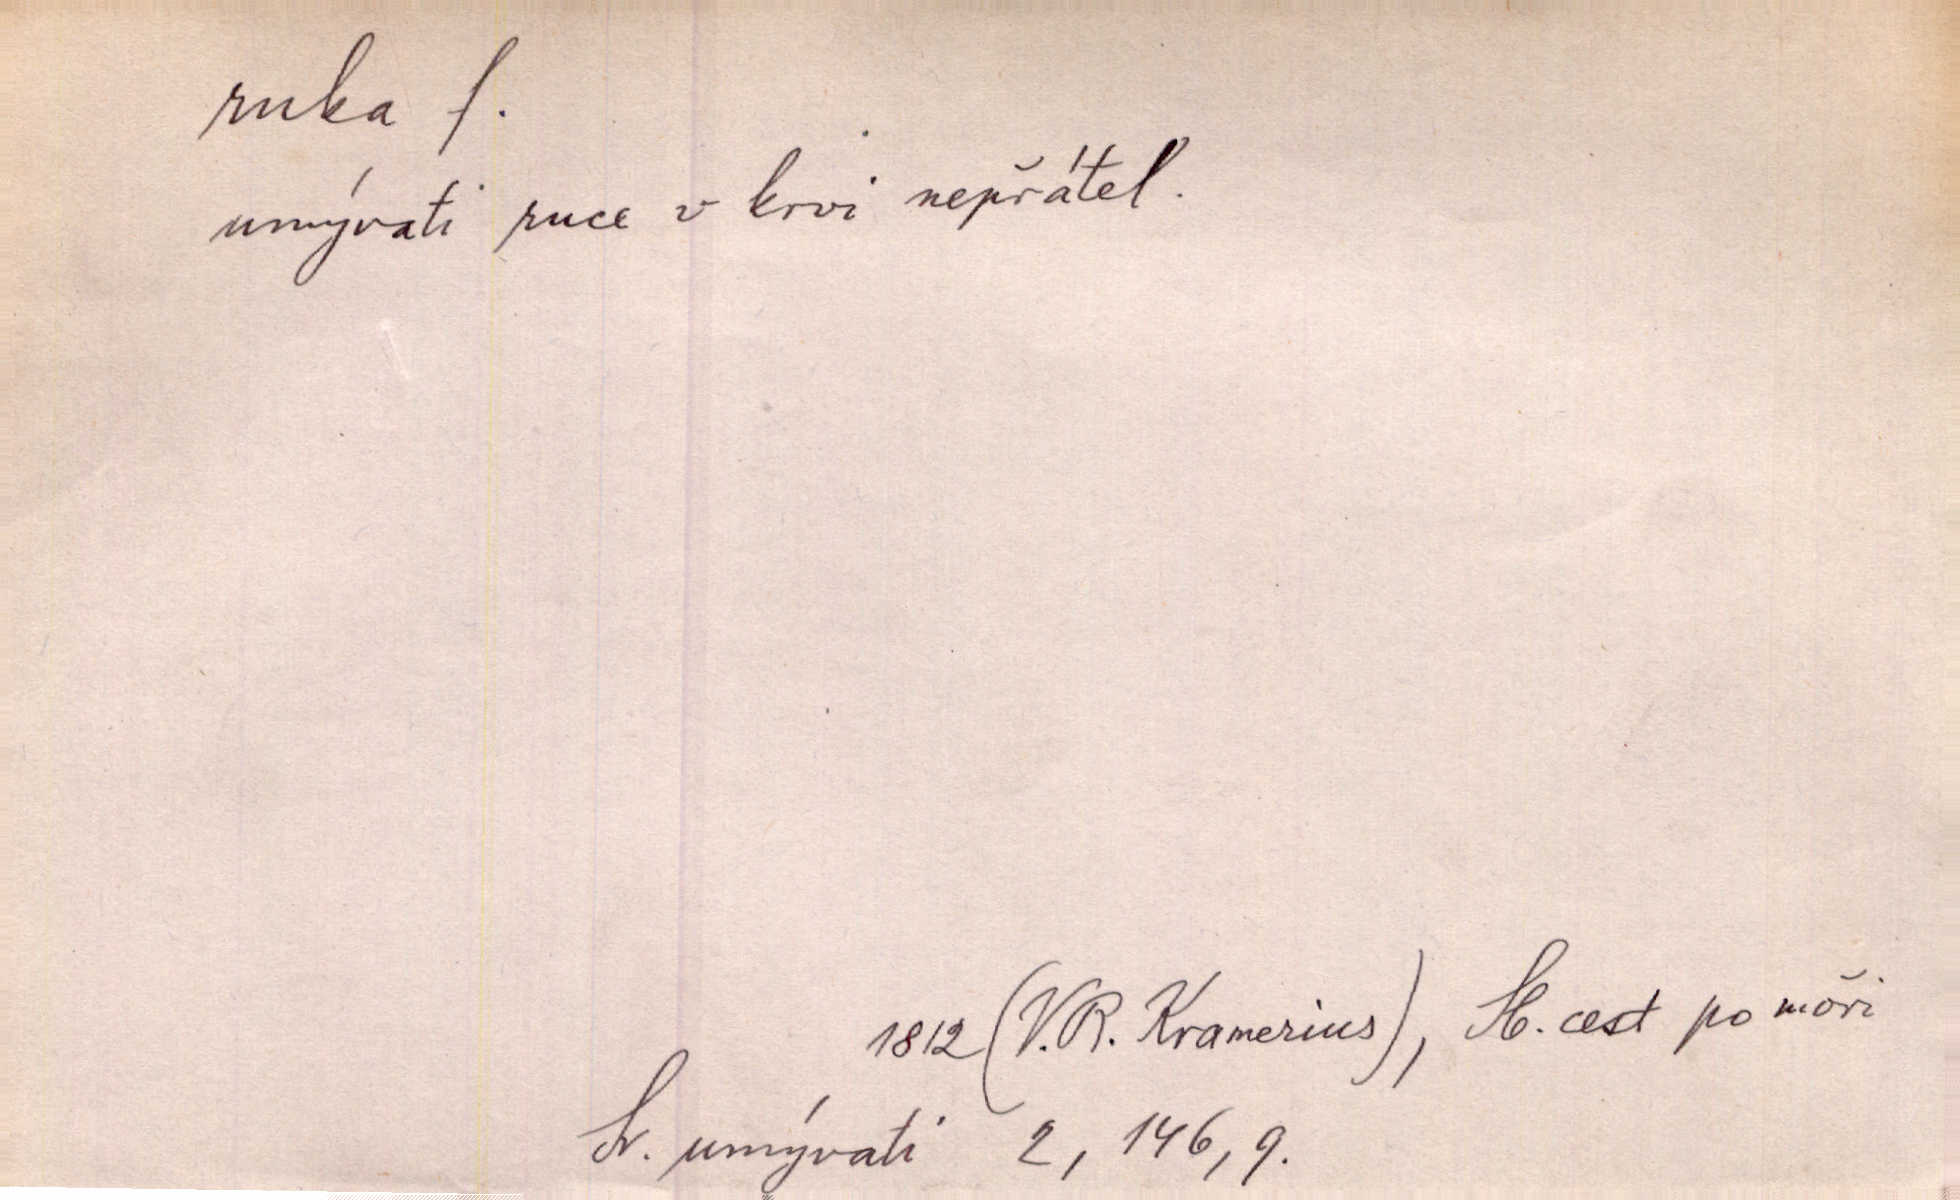 ruka f.
umývati ruce v krvi nepřátel.
1812 (V.R. Kramerius), Sb. cest po moři
Sr. umývati 2, 146, 9.